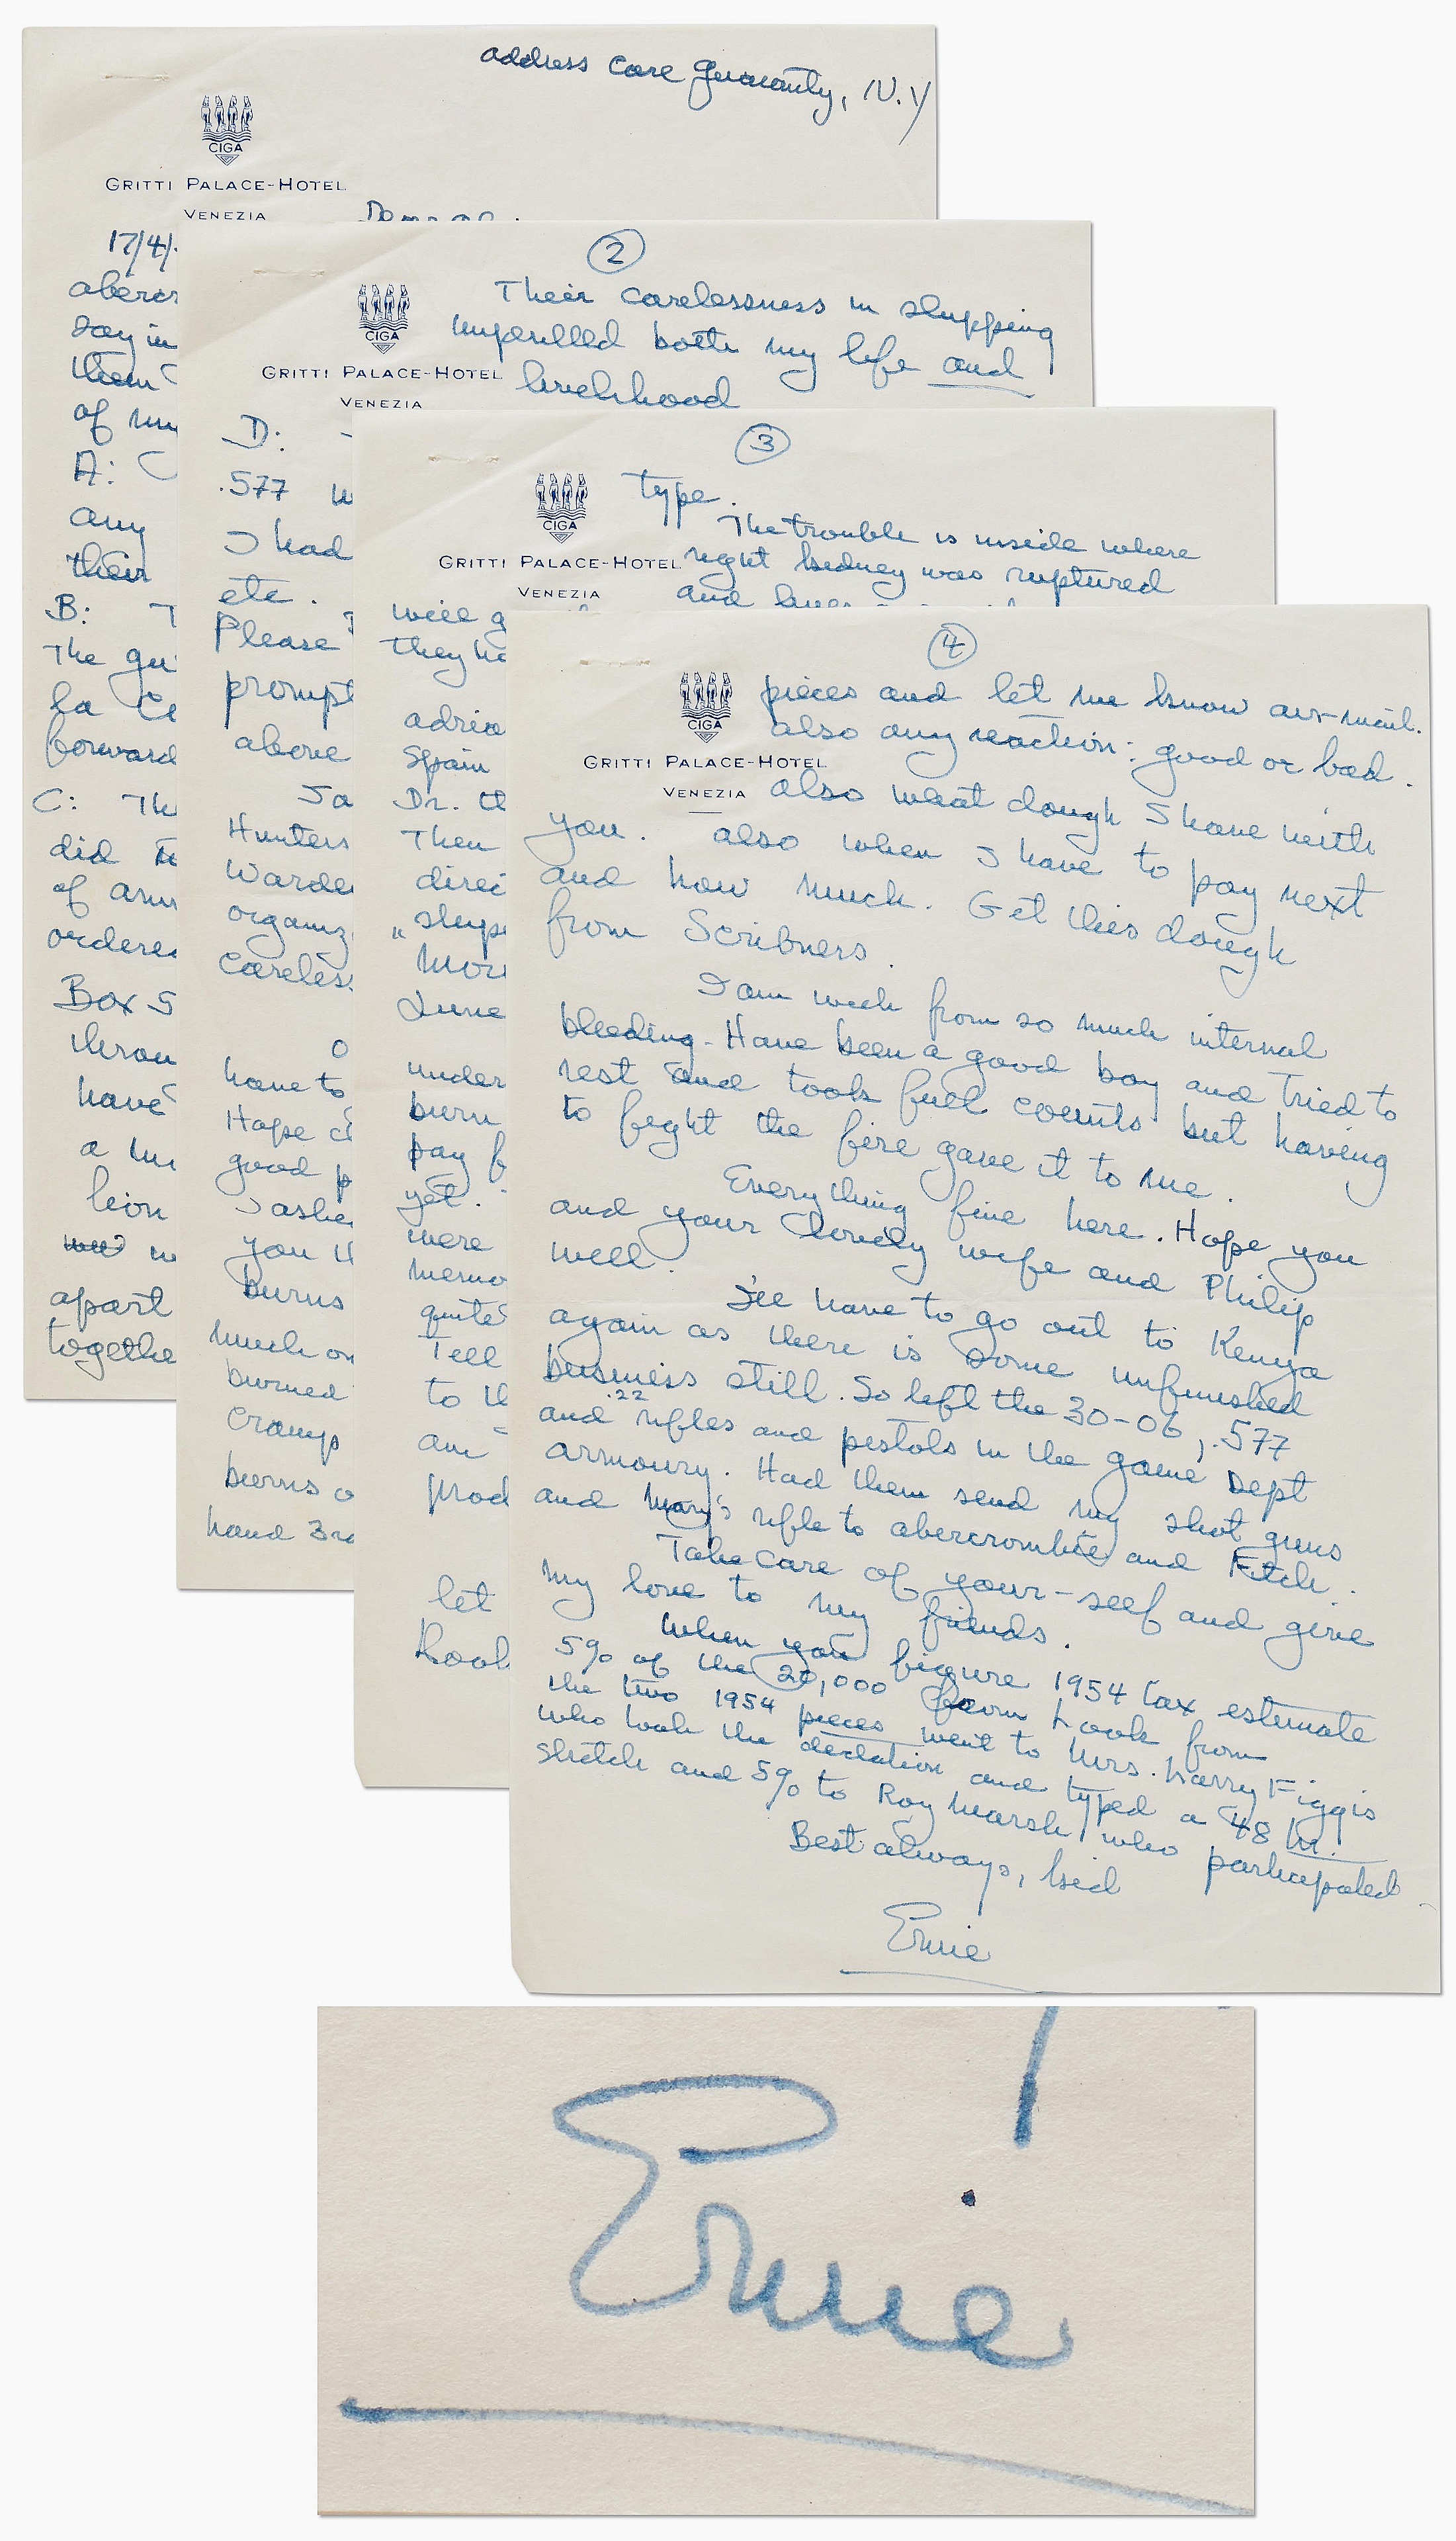 address care Guaranty, N.Y
CIGA
GRITTI PALACE-HOTEL
VENEZIA
17/4/
abercr
say in
them
of my
A:
any
their
B: T
The gu
la Ce
forward
C: Th
did
of am
ordered
Box 5
throu
have
a mi
lion
apart
together
2
CIGA
GRITTI PALACE-HOTEL
VENEZIA
Their carelessness in shipping
imperilled both my life and
livelihood
D:
.577 w
I had
etc.
Please
prompt
above
Sa
Hunters
Warde
organiz
careless
O
have to
Hope
good p
I ashe
you
burns
much on
burned
cramps
burns o
hand 3rd
3
CIGA
GRITTI PALACE-HOTEL
VENEZIA
type.
The trouble is inside where
right kidney was ruptured
and liver
will g
they ha
adria
Spain
Dr. th
Then
direc
"shipe
Mor
June
under
burn
pay f
yet.
were
memo
quite
Tell
to th
am
prod
let
Look
4
CIGA
GRITTI PALACE-HOTEL
VENEZIA
pieces and let me know air-mail.
also any reaction: good or bad.
also what dough I have with
you. also when I have to pay next
and how much. Get this dough
from Scribners.
I am weak from so much internal
bleeding. Have been a good boy and tried to
rest and took fuel counts but having
to fight the fire gave it to me.
Everything fine here. Hope you
and your lovely wife and Philip
well.
I'll have to go out to Kenya
again as there is some unfinished
business still. So left the 30-06, .577
and .22 rifles and pistols in the game Dept
armoury. Had them send my shot guns
and Mary's rifle to abercrombie and Fitch.
Take care of your-self and give
my love to my friends.
When you figure 1954 tax estimate
5% of the 20,000 from Look from
the two 1954 pieces went to Mrs. Harry Figgis
who took the dictation and typed a 48 hr.
stretch and 5% to Roy Marsh who participated
Best always, kid
Ernie
Ernie